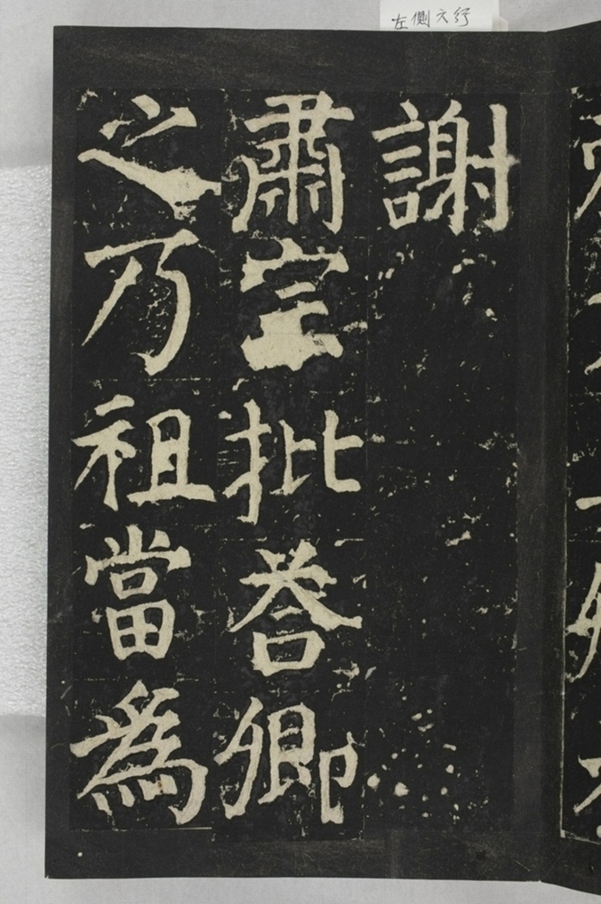 左側六行
謝
肅宗批荅卿
之乃祖當為